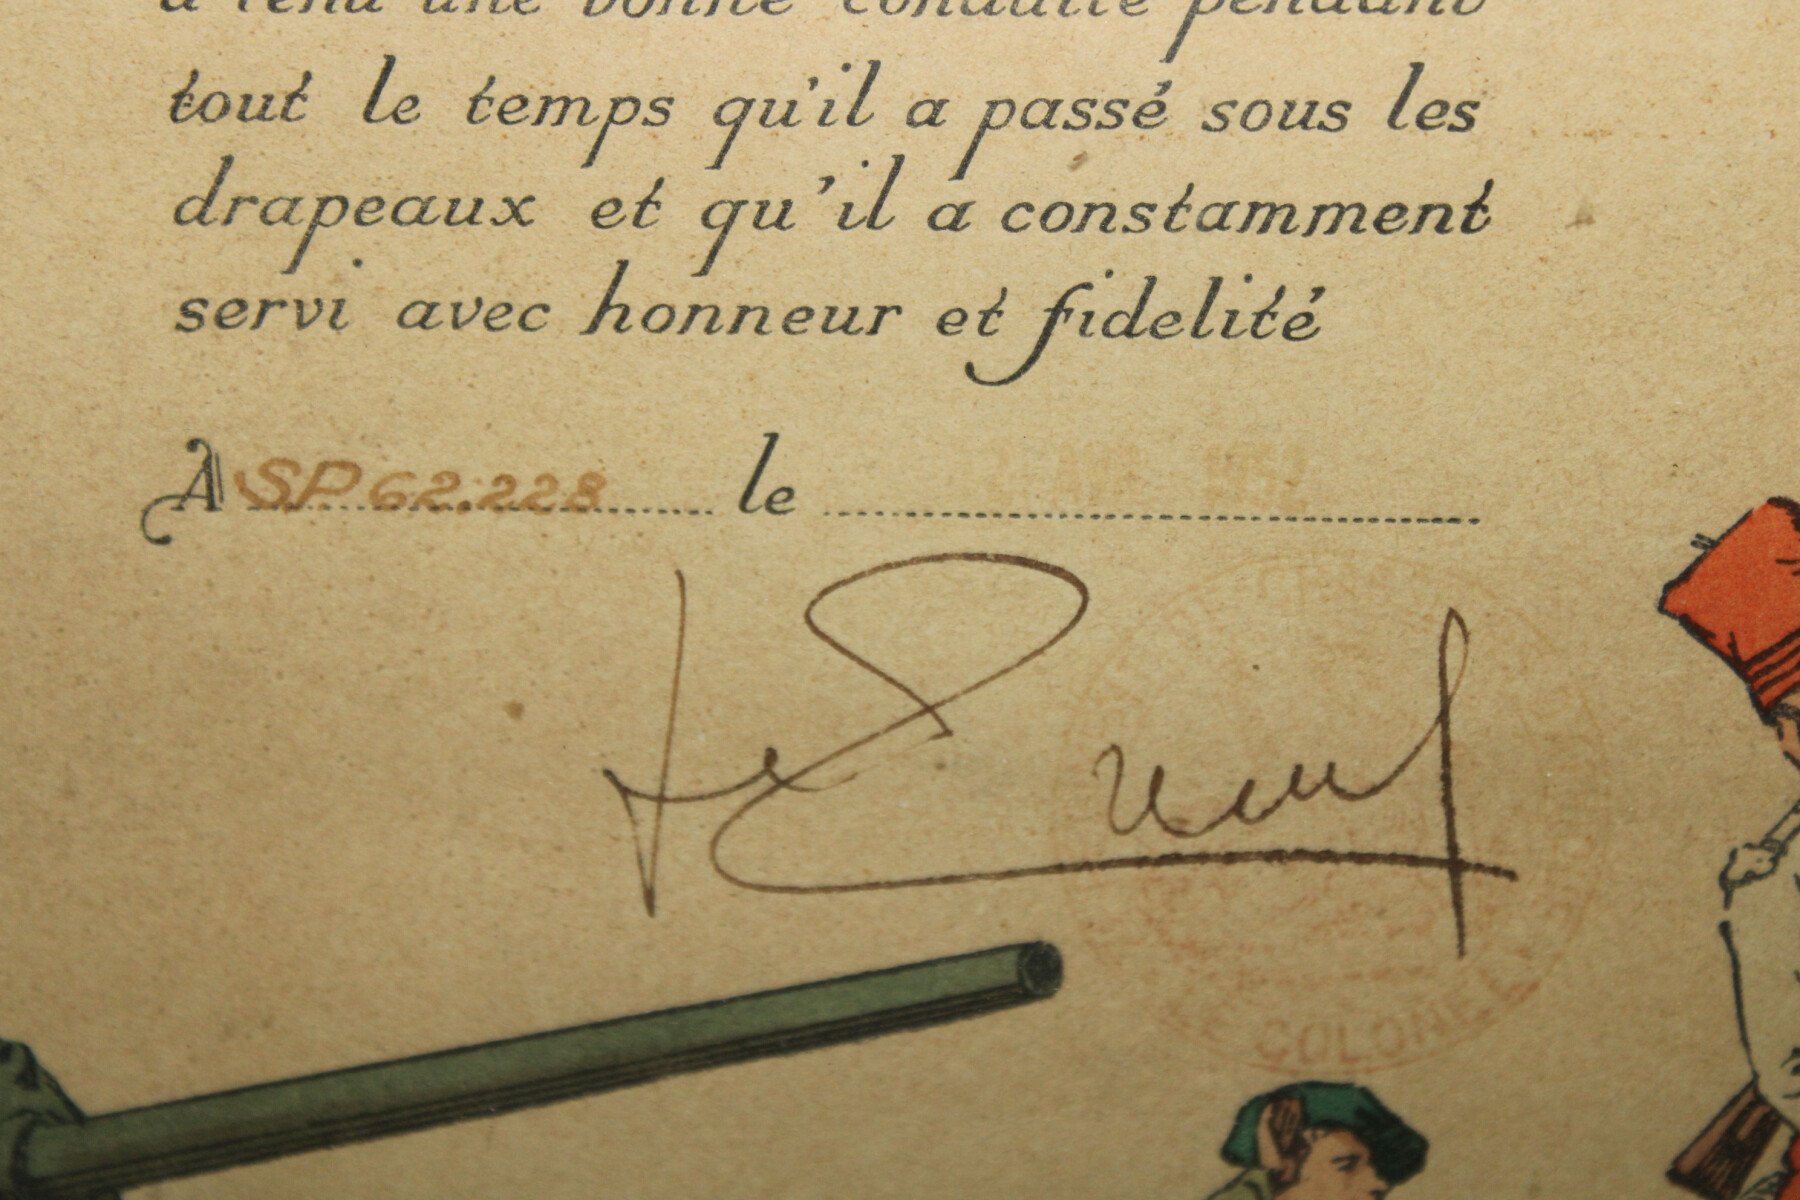 a tenu une bonne conduite pendant
tout le temps qu'il a passé sous les
drapeaux et qu'il a constamment
servi avec honneur et fidelité
A SP 62.228 le
LE COLONEL